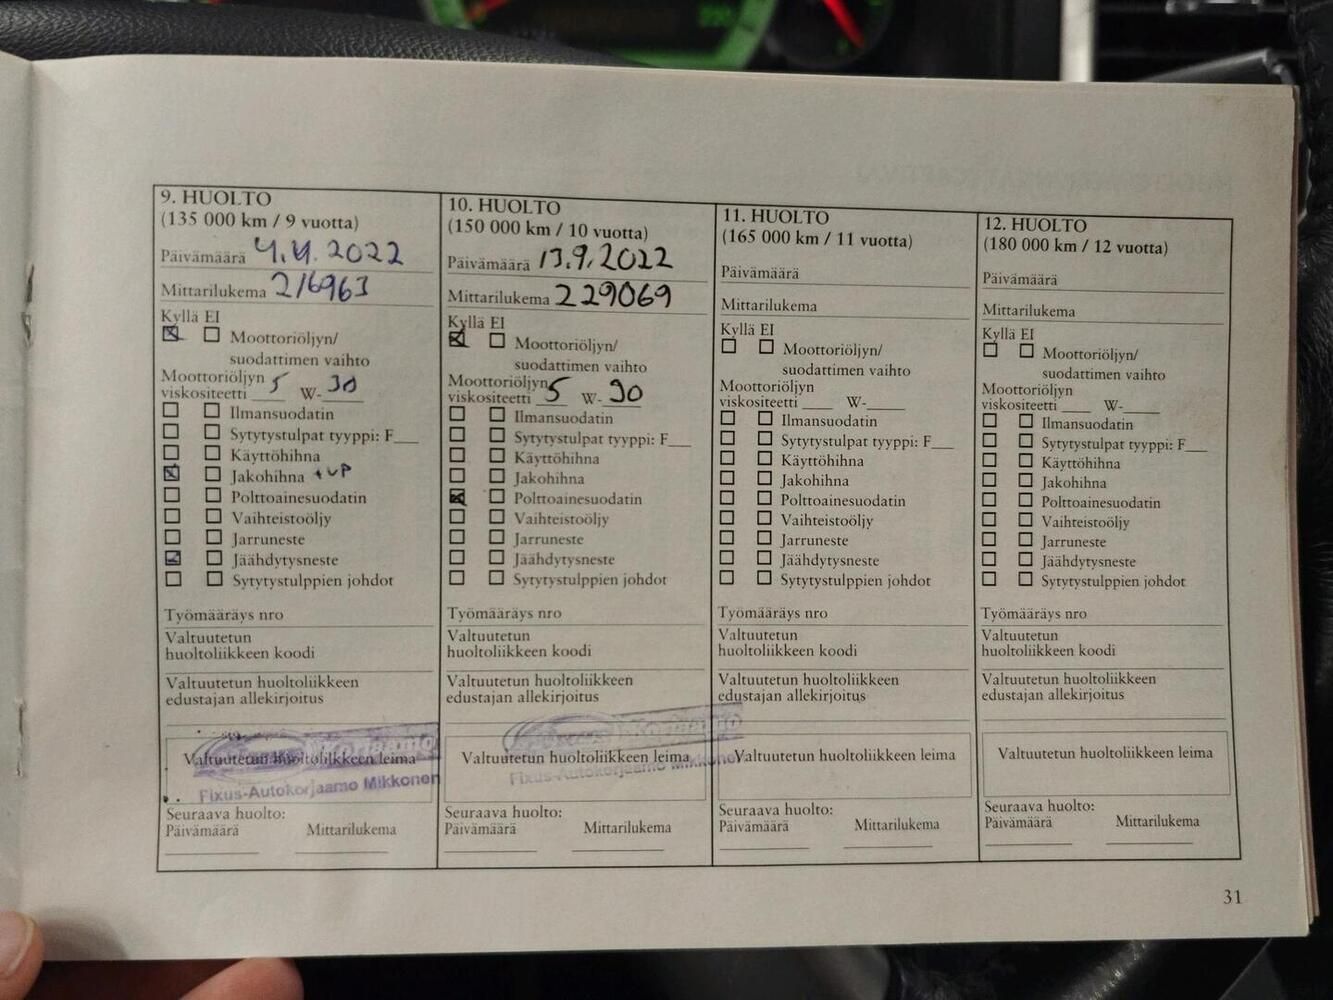 9. HUOLTO
(135 000 km / 9 vuotta)
Päivämäärä 4.4.2022
Mittarilukema 216963
Kyllä EI
Moottoriöljyn/
suodattimen vaihto
Moottoriöljyn
viskositeetti 5 W- 30
Ilmansuodatin
Sytytystulpat tyyppi: F___
Käyttöhihna
Jakohihna + VP
Polttoainesuodatin
Vaihteistoöljy
Jarruneste
Jäähdytysneste
Sytytystulppien johdot
Työmääräys nro
Valtuutetun
huoltoliikkeen koodi
Valtuutetun huoltoliikkeen
edustajan allekirjoitus
Valtuutetun huoltoliikkeen leima
Fixus-Autokorjaamo Mikkonen
Seuraava huolto:
Päivämäärä Mittarilukema
10. HUOLTO
(150 000 km / 10 vuotta)
Päivämäärä 13.9.2022
Mittarilukema 229069
Kyllä EI
Moottoriöljyn/
suodattimen vaihto
Moottoriöljyn
viskositeetti 5 W- 30
Ilmansuodatin
Sytytystulpat tyyppi: F___
Käyttöhihna
Jakohihna
Polttoainesuodatin
Vaihteistoöljy
Jarruneste
Jäähdytysneste
Sytytystulppien johdot
Työmääräys nro
Valtuutetun
huoltoliikkeen koodi
Valtuutetun huoltoliikkeen
edustajan allekirjoitus
Valtuutetun huoltoliikkeen leima
Fixus-Autokorjaamo Mikkonen
Seuraava huolto:
Päivämäärä Mittarilukema
11. HUOLTO
(165 000 km / 11 vuotta)
Päivämäärä
Mittarilukema
Kyllä EI
Moottoriöljyn/
suodattimen vaihto
Moottoriöljyn
viskositeetti ___ W-____
Ilmansuodatin
Sytytystulpat tyyppi: F___
Käyttöhihna
Jakohihna
Polttoainesuodatin
Vaihteistoöljy
Jarruneste
Jäähdytysneste
Sytytystulppien johdot
Työmääräys nro
Valtuutetun
huoltoliikkeen koodi
Valtuutetun huoltoliikkeen
edustajan allekirjoitus
Valtuutetun huoltoliikkeen leima
Seuraava huolto:
Päivämäärä Mittarilukema
12. HUOLTO
(180 000 km / 12 vuotta)
Päivämäärä
Mittarilukema
Kyllä EI
Moottoriöljyn/
suodattimen vaihto
Moottoriöljyn
viskositeetti ___ W-____
Ilmansuodatin
Sytytystulpat tyyppi: F___
Käyttöhihna
Jakohihna
Polttoainesuodatin
Vaihteistoöljy
Jarruneste
Jäähdytysneste
Sytytystulppien johdot
Työmääräys nro
Valtuutetun
huoltoliikkeen koodi
Valtuutetun huoltoliikkeen
edustajan allekirjoitus
Valtuutetun huoltoliikkeen leima
Seuraava huolto:
Päivämäärä Mittarilukema
31